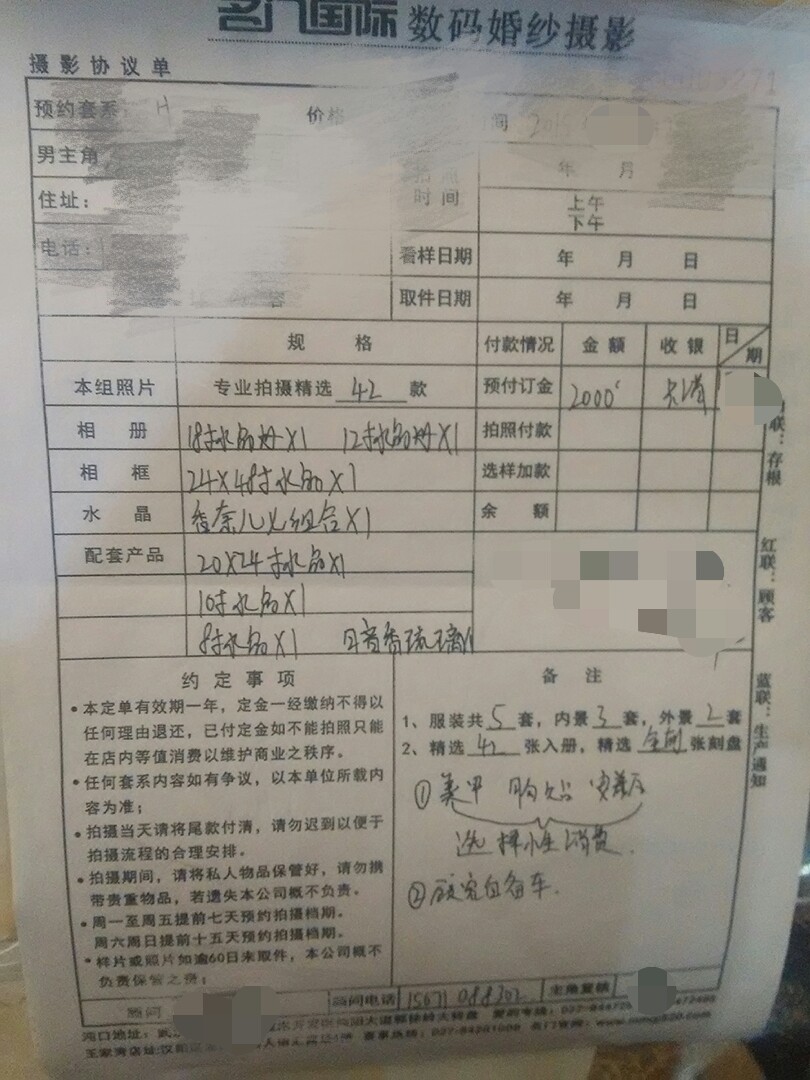 名门国际 数码婚纱摄影
摄影协议单
预约套系 H 价格 间
男主角
年 月
住址:
时间
上午
下午
电话:
看样日期 年 月 日
取件日期 年 月 日
规 格 付款情况 金额 收银 日期
本组照片 专业拍摄精选 42 款 预付订金 2000
相 册 18寸水晶册X1 12寸水晶册X1 拍照付款
相 框 24X48寸水晶X1 选样加款
水 晶 香奈儿组合X1 余 额
配套产品 20X24寸水晶X1
10寸水晶X1
8寸水晶X1
联:存根
红联:顾客
蓝联:生产通知
约定事项
•本定单有效期一年,定金一经缴纳不得以
任何理由退还,已付定金如不能拍照只能
在店内等值消费以维护商业之秩序。
•任何套系内容如有争议,以本单位所载内
容为准;
•拍摄当天请将尾款付清,请勿迟到以便于
拍摄流程的合理安排。
•拍摄期间,请将私人物品保管好,请勿携
带贵重物品,若遗失本公司概不负责。
•周一至周五提前七天预约拍摄档期。
周六周日提前十五天预约拍摄档期。
•样片或照片如逾60日未取件,本公司概不
负责保管之责;
备 注
1、服装共 5 套,内景 3 套,外景 2 套
2、精选 42 张入册,精选 全部 张刻盘
①美甲 胸贴 安瓶
选择性消费.
②顾客自备车.
顾问 顾问电话 15671 088202 主角复核